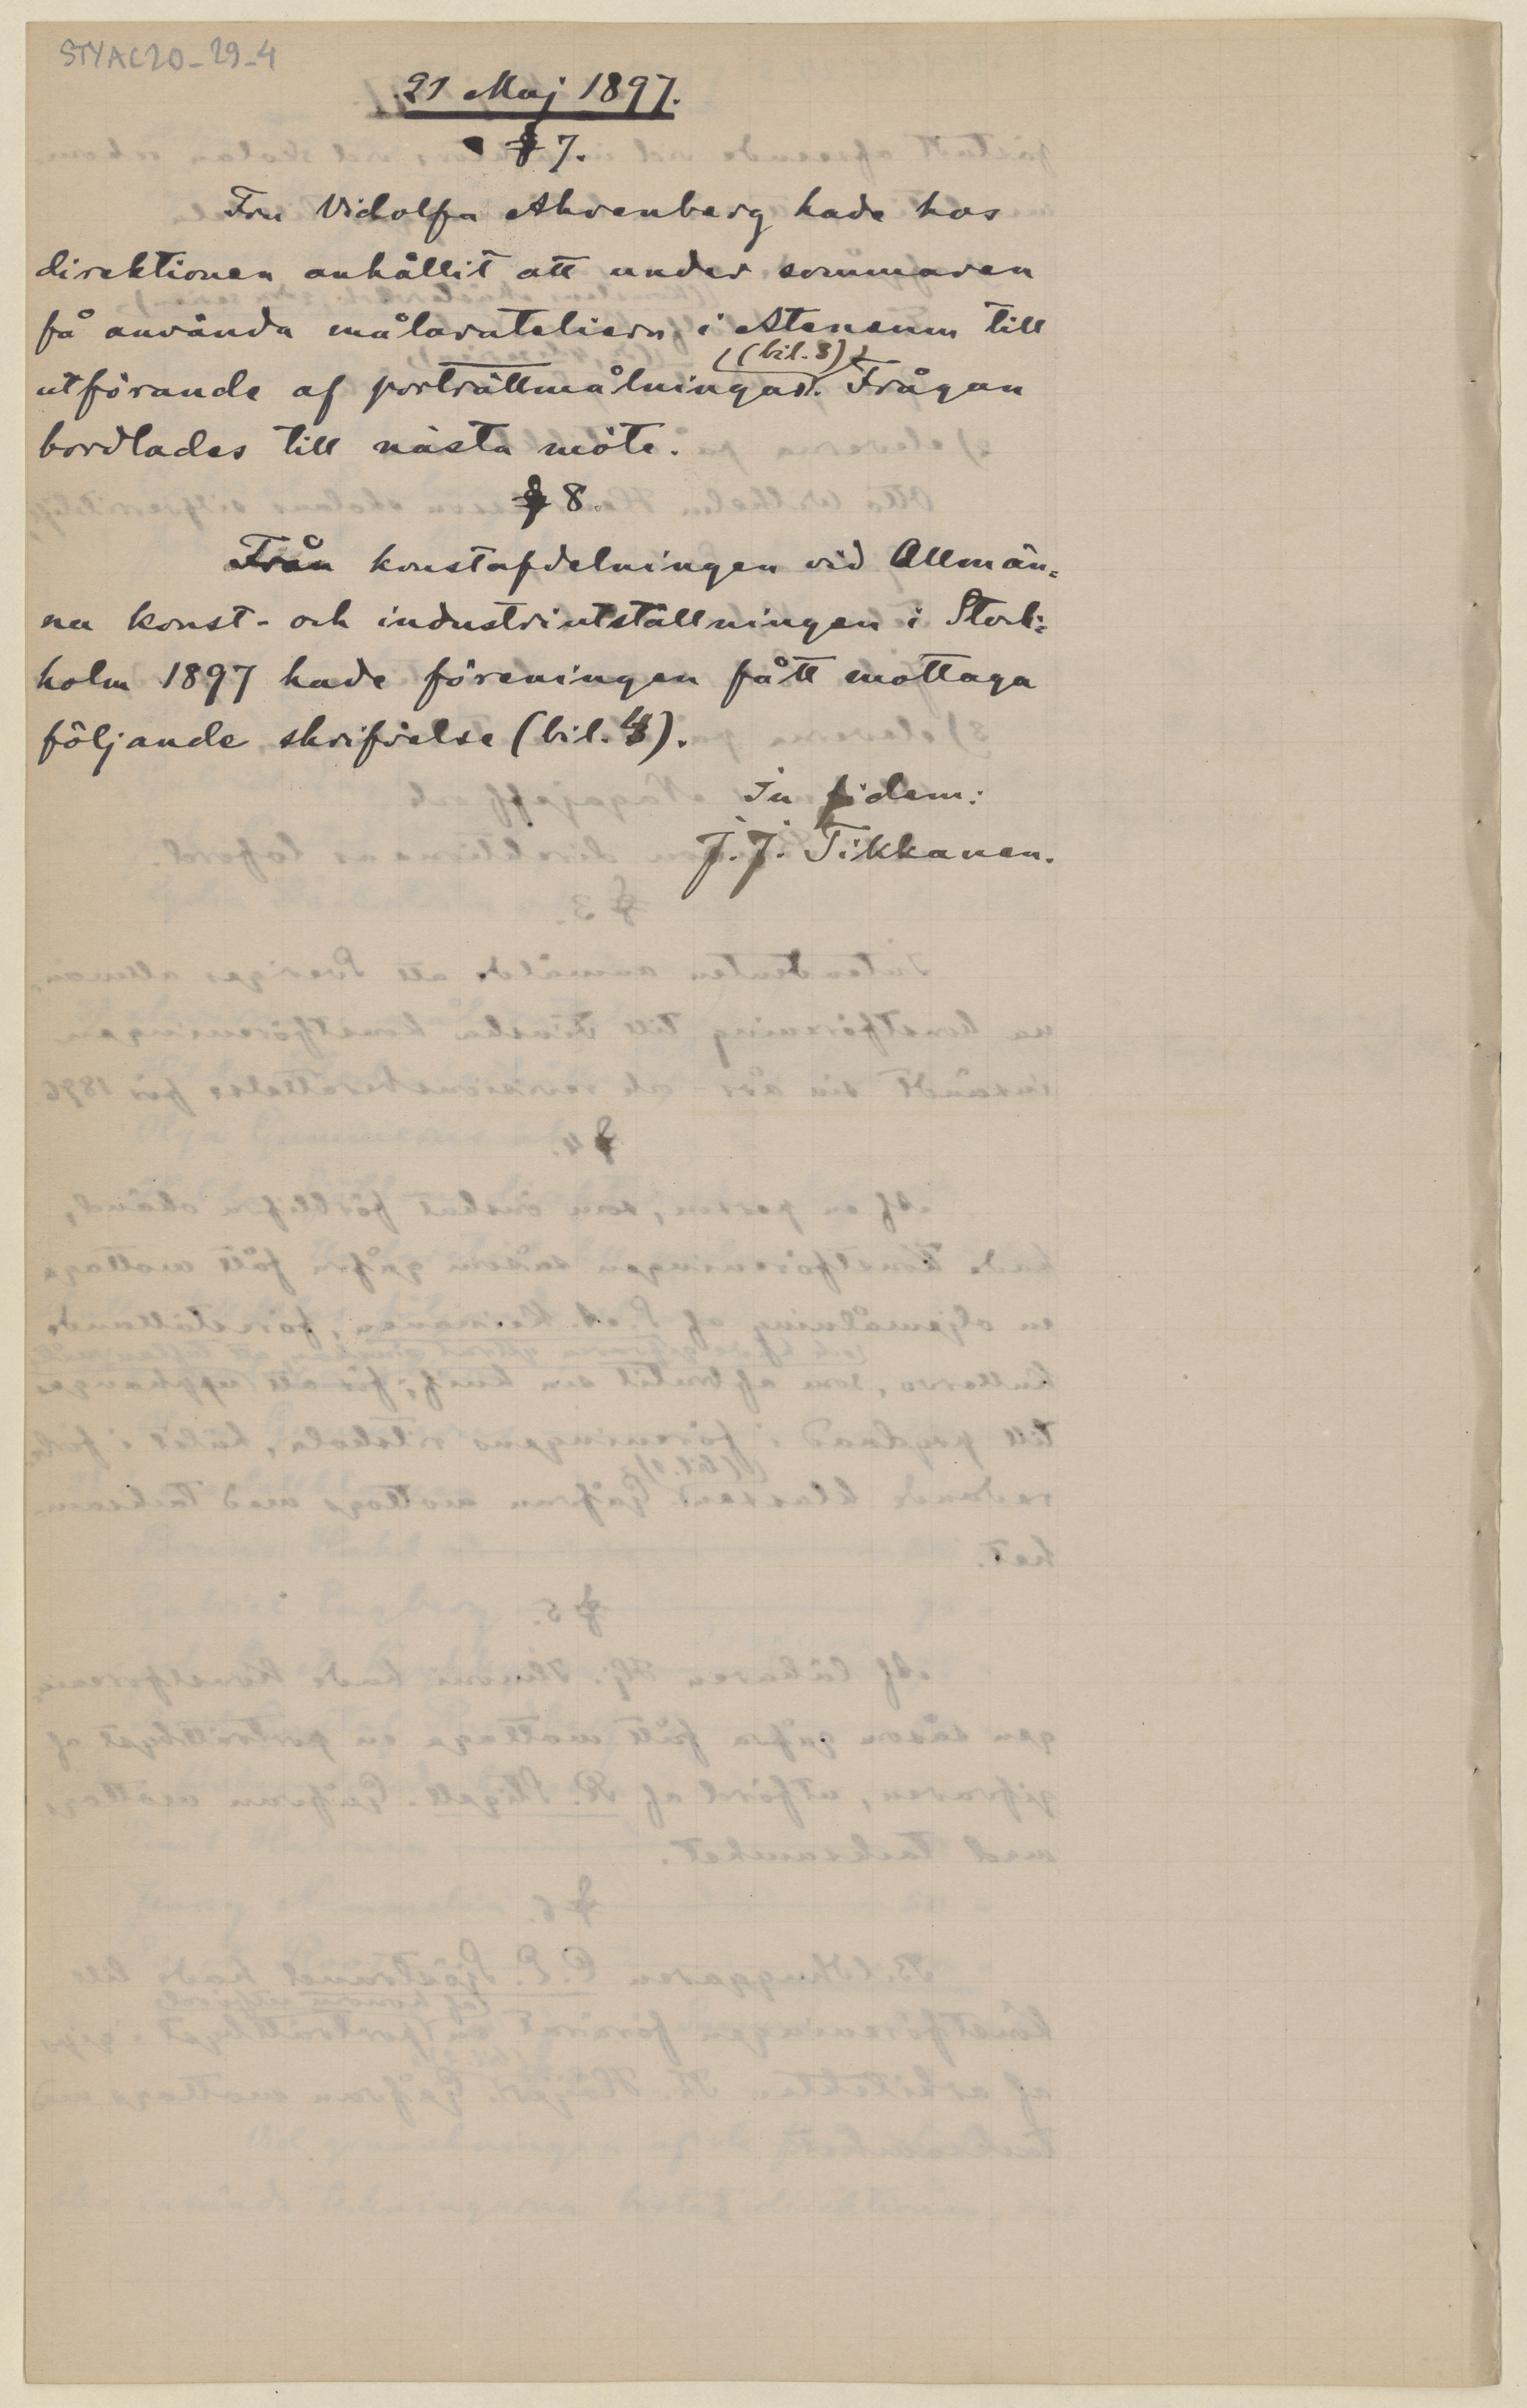 STYAC20-29-4
21 Maj 1897.
§ 7.
Fru Vidolfra Ahrenberg hade hos
direktionen anhållit att under sommaren
få använda målarateliern i Ateneum till
(bil. 3)
utförande af porträttmålningar. Frågan
bordlades till nästa möte.
§ 8.
Från konstafdelningen vid Allmän=
na konst- och industriutställningen i Stock=
holm 1897 hade föreningen fått mottaga
följande skrifvelse (bil. 4).
In fidem:
J. J. Tikkanen.